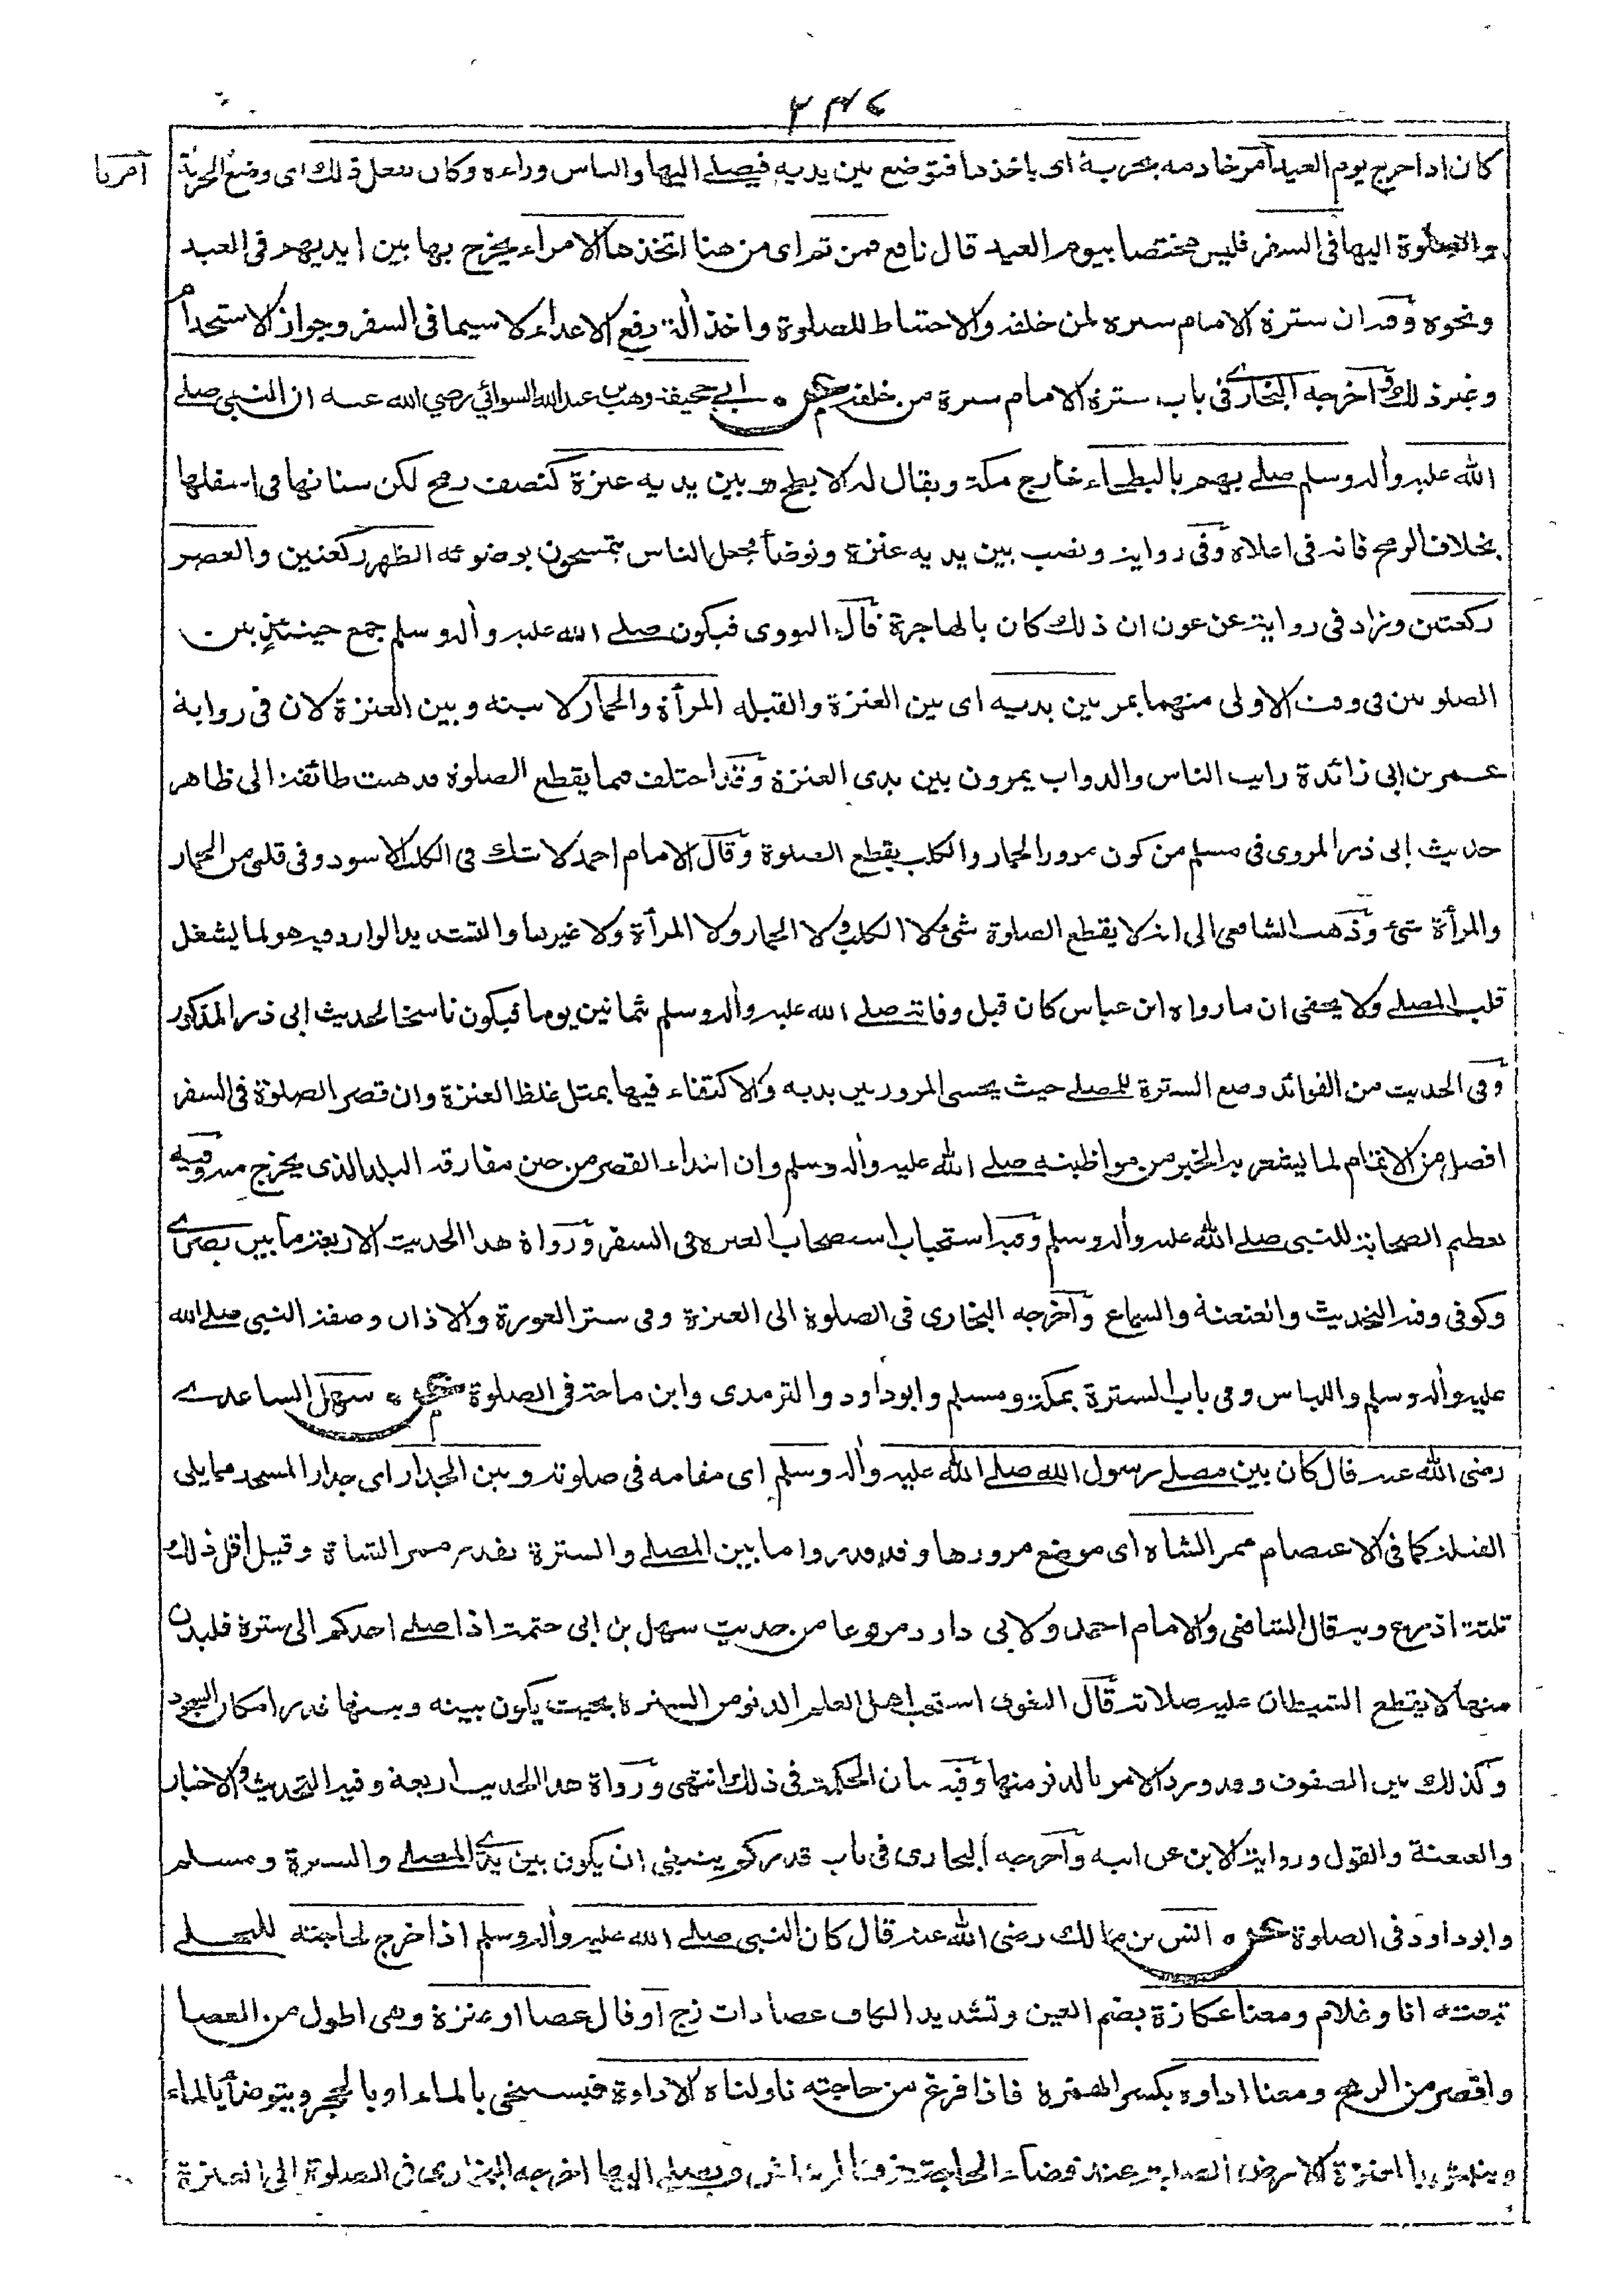 ٢٣٤
كان اذا خرج يوم العيد امر خادمه بحربة اى ياخذها فتوضع بين يديه فيصلے اليها والناس وراءه وكان يفعل ذلك اى وضع الحربة
امر با
والصلوة اليها فى السفر فليس مختصا بيوم العيد قال نافع فمن ثم اى من هنا اتخذها الامراء يخرج بها بين ايديهم فى العيد
ونحوه وفيه ان سترة الامام سترة لمن خلفه والاحتياط للصلوة واخذ آلة دفع الاعداء لا سيما فى السفر وجواز الاستخدام
وغير ذلك واخرجه البخارے فى باب سترة الامام سترة من خلفه ابى جحيفة وهب بن عبد الله السوائي رضي الله عنه ان النبى صلے
الله عليه وآله وسلم صلے بهم بالبطحاء خارج مكة ويقال له الابطح وبين يديه عنزة كنصف رمح لكن سنانها فى اسفلها
بخلاف الرمح فانه فى اعلاه وفى رواية ونصب بين يديه عنزة وتوضأ فجعل الناس يتمسحون بوضوئه الظهر ركعتين والعصر
ركعتين وزاد فى رواية عن عون ان ذلك كان بالهاجرة قال النووى فيكون صلے الله عليه وآله وسلم جمع حينئذٍ بين
الصلوتين فى وقت الاولى منهما يمر بين يديه اى بين العنزة والقبلة المرأة والحمار لا بينه وبين العنزة لان فى رواية
عمر بن ابى زائدة رايت الناس والدواب يمرون بين يدى العنزة وقد اختلف فيما يقطع الصلوة فذهبت طائفة الى ظاهر
حديث ابى ذر المروى فى مسلم من كون مرور الحمار والكلب يقطع الصلوة وقال الامام احمد لا شك فى الكلب الاسود وفى قلبى من الحمار
والمرأة شئ وذهب الشافعى الى انه لا يقطع الصلوة شئ لا الكلب ولا الحمار ولا المرأة ولا غيرها والتشديد الوارد فيه هو لما يشغل
قلب المصلے ولا يخفى ان ما رواه ابن عباس كان قبل وفاته صلے الله عليه وآله وسلم ثمانين يوما فيكون ناسخا لحديث ابى ذر المذكور
وفى الحديث من الفوائد وضع السترة للمصلے حيث يخشى المرور بين يديه والاكتفاء فيها بمثل غلظ العنزة وان قصر الصلوة فى السفر
افضل من الاتمام لما يشعر به الخبر من مواظبته صلے الله عليه وآله وسلم وان ابتداء القصر من حين مفارقة البلد الذى يخرج منه وفيه
تعظيم الصحابة للنبى صلے الله عليه وآله وسلم وفيه استحباب استصحاب العنزة فى السفر ورواة هذا الحديث الاربعة ما بين بصرے
وكوفى وفيه التحديث والعنعنة والسماع واخرجه البخارى فى الصلوة الى العنزة وفى ستر العورة والاذان وصفة النبى صلے الله
عليه وآله وسلم واللباس وفى باب السترة بمكة ومسلم وابو داود والترمذى وابن ماجة فى الصلوة سهل الساعدے
رضى الله عنه قال كان بين مصلے رسول الله صلے الله عليه وآله وسلم اى مقامه فى صلوته وبين الجدار اى جدار المسجد مما يلى
القبلة كما فى الاعتصام ممر الشاة اى موضع مرورها وقد قدروا ما بين المصلے والسترة بقدر ممر الشاة وقيل اقل ذلك
ثلثة اذرع وبه قال الشافعى والامام احمد ولابى داود مرفوعا من حديث سهل بن ابى حثمة اذا صلے احدكم الى سترة فليدن
منها لا يقطع الشيطان عليه صلاته قال البغوى استحب اهل العلم الدنو من السترة بحيث يكون بينه وبينها قدر امكان السجود
وكذلك بين الصفوف وقد ورد الامر بالدنو منها وفيه بيان الحكمة فى ذلك انتهى ورواة هذا الحديث اربعة وفيه التحديث والاخبار
والعنعنة والقول ورواية الابن عن ابيه واخرجه البخارى فى باب قدر كم ينبغي ان يكون بين يدے المصلے والسترة ومسلم
وابو داود فى الصلوة انس بن مالك رضى الله عنه قال كان النبى صلے الله عليه وآله وسلم اذا خرج لحاجته للتخلے
تبعته انا وغلام ومعنا عكازة بضم العين وتشديد الكاف عصا ذات زج او قال عصا او عنزة وهى اطول من العصا
واقصر من الرمح ومعنا اداوة بكسر الهمزة فاذا فرغ من حاجته ناولناه الاداوة فيستنجى بالماء او بالحجر ويتوضأ بالماء
وينبش بالعنزة الارض الصلبة عند قضاء الحاجة خوفا الرشاش ويصلے اليها اخرجه البخارى فى الصلوة الى العنزة